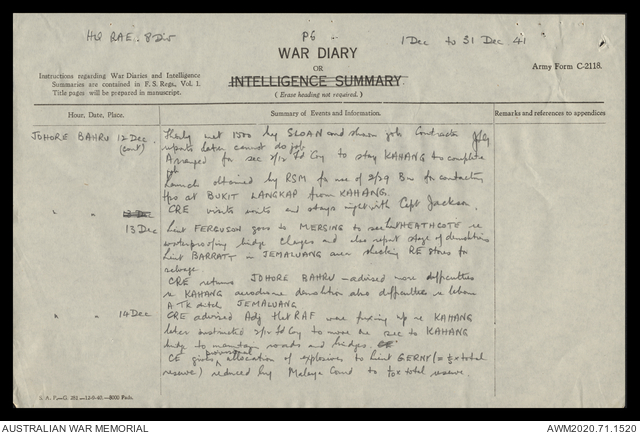 HQ RAE. 8 Div
P6
1 Dec to 31 Dec 41
WAR DIARY
OR
INTELLIGENCE SUMMARY.
(Erase heading not required.)
Army Form C-2118.
Instructions regarding War Diaries and Intelligence
Summaries are contained in F. S. Regs., Vol. I.
Title pages will be prepared in manuscript.
Hour, Date, Place.
Summary of Events and Information.
Remarks and references to appendices
JOHORE BAHRU 12 Dec
(cont)
met 1500 by SLOAN and shown job Contractor
later cannot do job.
Arranged for sec 2/12 Fd Coy to stay KAHANG to complete
job
Launch obtained by RSM for use of 2/29 Bn for contacting
tps at BUKIT LANGKAP from KAHANG.
" " 
CRE visits units and stays night with Capt Jackson.
13 Dec
Lieut FERGUSON goes to MERSING to see Lieut HEATHCOTE re
waterproofing bridge charges and also report stage of demolitions
Lieut BARRATT in JEMALUANG area checking RE stores for
CRE returns JOHORE BAHRU - advised more difficulties
re KAHANG aerodrome demolition also difficulties re labour
A TK ditch JEMALUANG
" " 14 Dec
CRE advised Adj that RAF were fixing up re KAHANG
later instructed 2/12 Fd Coy to move the sec to KAHANG
bridge to maintain roads and bridges. CE
CE gives provisional allocation of explosives to Lieut GERNY (= ½ x total
reserve) reduced by Malaya Comd to 1/10 x total reserve.
S. A. P.—G. 251—12-9-40.—8000 Pads.
AUSTRALIAN WAR MEMORIAL
AWM2020.71.1520